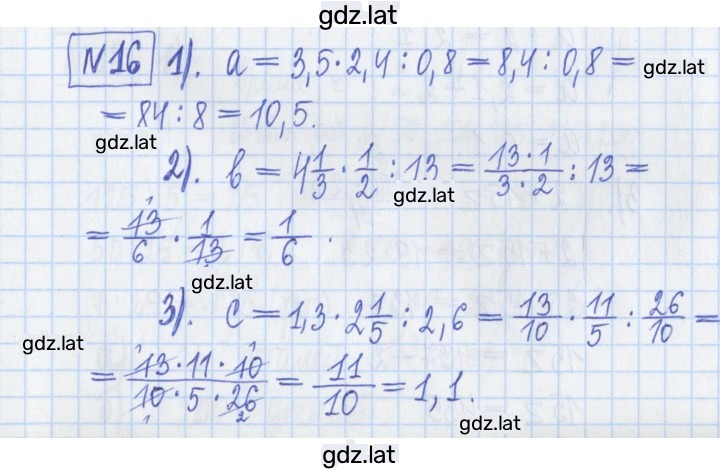 gdz.lat
№16 1). a = 3,5·2,4:0,8 = 8,4:0,8 = gdz.lat
= 84:8 = 10,5.
gdz.lat
2). b = 4 1/3 · 1/2 : 13 = 13·1/3·2 : 13 =
gdz.lat
= 13/6 · 1/13 = 1/6.
gdz.lat
3). c = 1,3·2 1/5 : 2,6 = 13/10 · 11/5 : 26/10 =
gdz.lat
= 13·11·10/10·5·26 = 11/10 = 1,1.
gdz.lat
gdz.lat